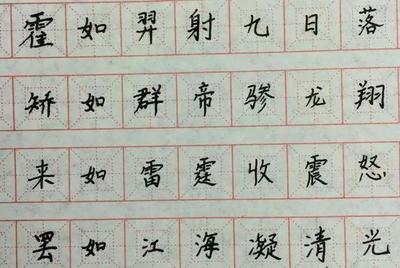 霍如羿射九日落
矫如群帝骖龙翔
来如雷霆收震怒
罢如江海凝清光